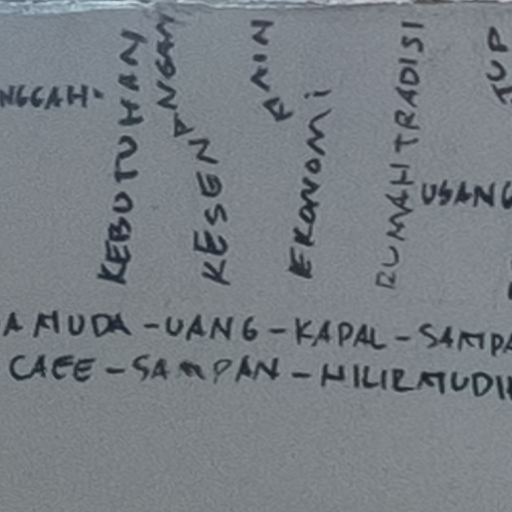 NGGAH-
KEBUTUHAN
KESENJANGAN
RAIN
EKONOMI
RUMAH TRADISI
TUP
USANG
A MUDA - UANG - KAPAL - SAMPA
CAFE - SAMPAN - HILIR MUDI